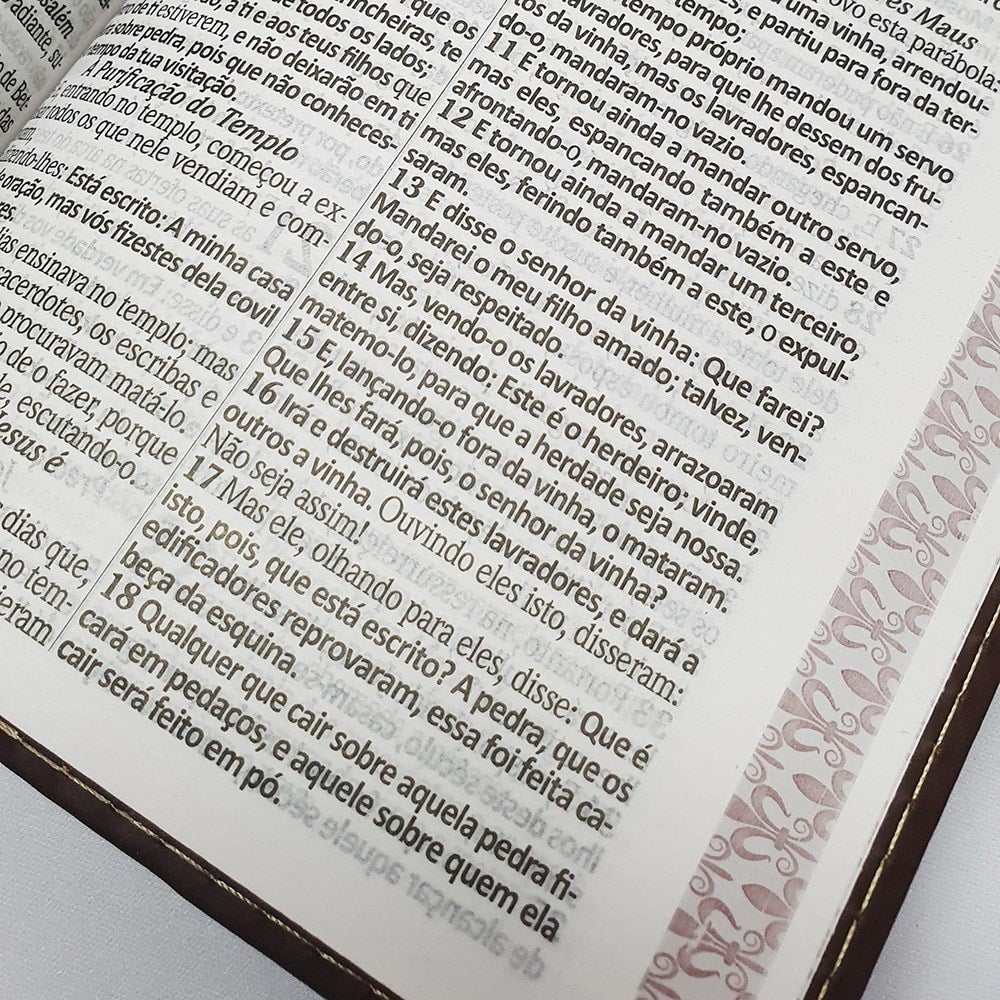 salém.
adiante, su-
de Bet-
de todos os lados;
estiverem, a ti e aos teus filhos que
sobre pedra, pois que não conheces-
tempo da tua visitação.
A Purificação do Templo
entrando no templo, começou a ex-
todos os que nele vendiam e com-
Está escrito: A minha casa
oração, mas vós fizestes dela covil
ensinava no templo; mas
os escribas e
procuravam matá-lo.
de o fazer, porque
escutando-o.
Jesus é
dias que,
no tem-
Maus
esta parábola:
uma vinha, arrendou-
e partiu para fora da ter-
tempo;
tempo próprio mandou um servo
lavradores, para que lhe dessem dos fru-
tos da vinha, mas os lavradores, espancan-
do-o, mandaram-no vazio.
11 E tornou ainda a mandar outro servo,
mas eles, espancando também a este e
afrontando-o, mandaram-no vazio.
12 E tornou ainda a mandar um terceiro,
mas eles, ferindo também a este, o expul-
saram.
13 E disse o senhor da vinha: Que farei?
Mandarei o meu filho amado; talvez, ven-
do-o, seja respeitado.
14 Mas, vendo-o os lavradores, arrazoaram
entre si, dizendo: Este é o herdeiro; vinde,
matemo-lo, para que a herdade seja nossa.
15 E, lançando-o fora da vinha, o mataram.
Que lhes fará, pois, o senhor da vinha?
16 Irá e destruirá estes lavradores, e dará a
outros a vinha. Ouvindo eles isto, disseram:
Não seja assim!
17 Mas ele, olhando para eles, disse: Que é
isto, pois, que está escrito? A pedra, que os
edificadores reprovaram, essa foi feita ca-
beça da esquina.
18 Qualquer que cair sobre aquela pedra fi-
cará em pedaços, e aquele sobre quem ela
cair será feito em pó.